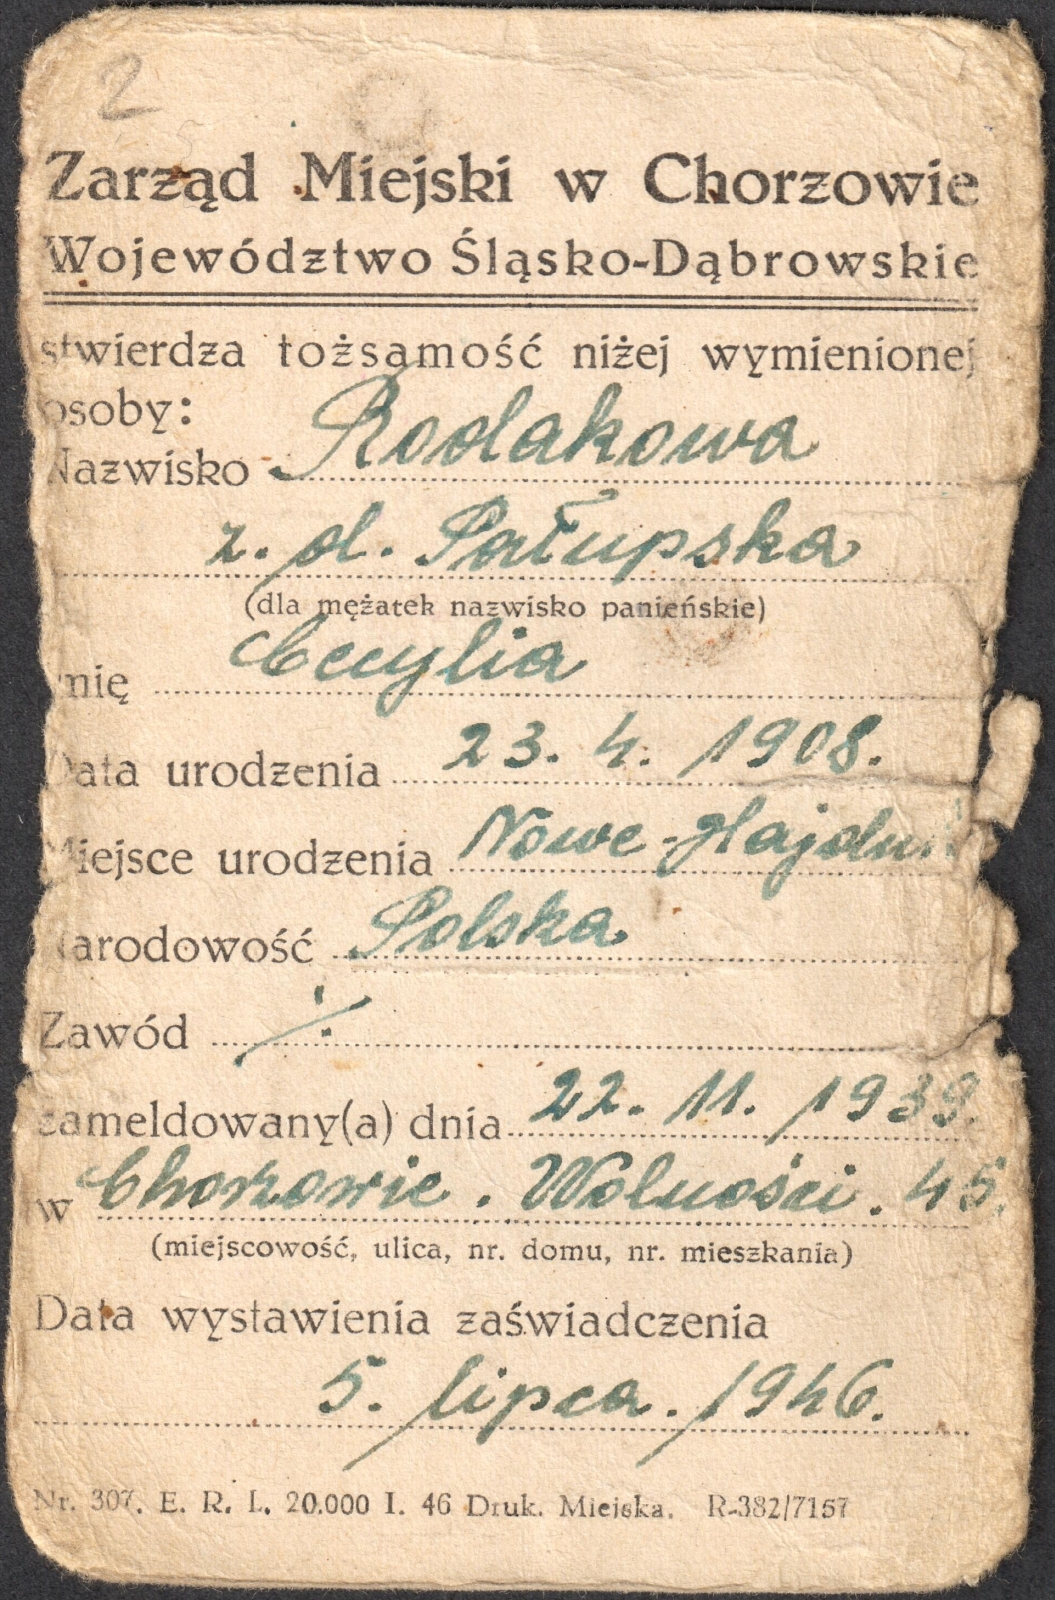 2
Zarząd Miejski w Chorzowie
Województwo Śląsko-Dąbrowskie
stwierdza tożsamość niżej wymienionej
osoby:
Nazwisko Rodakowa
z. d. Pałupska
(dla mężatek nazwisko panieńskie)
mię Cecylia
Data urodzenia 23. 4. 1908.
Miejsce urodzenia Nowe-Hajduki
Narodowość Polska
Zawód ./.
zameldowany(a) dnia 22. 11. 1939.
w Chorzowie. Wolności. 45.
(miejscowość, ulica, nr. domu, nr. mieszkania)
Data wystawienia zaświadczenia
5. lipca. 1946.
Nr. 307. E. R. I. 20.000 I. 46 Druk. Miejska. R-382/7157